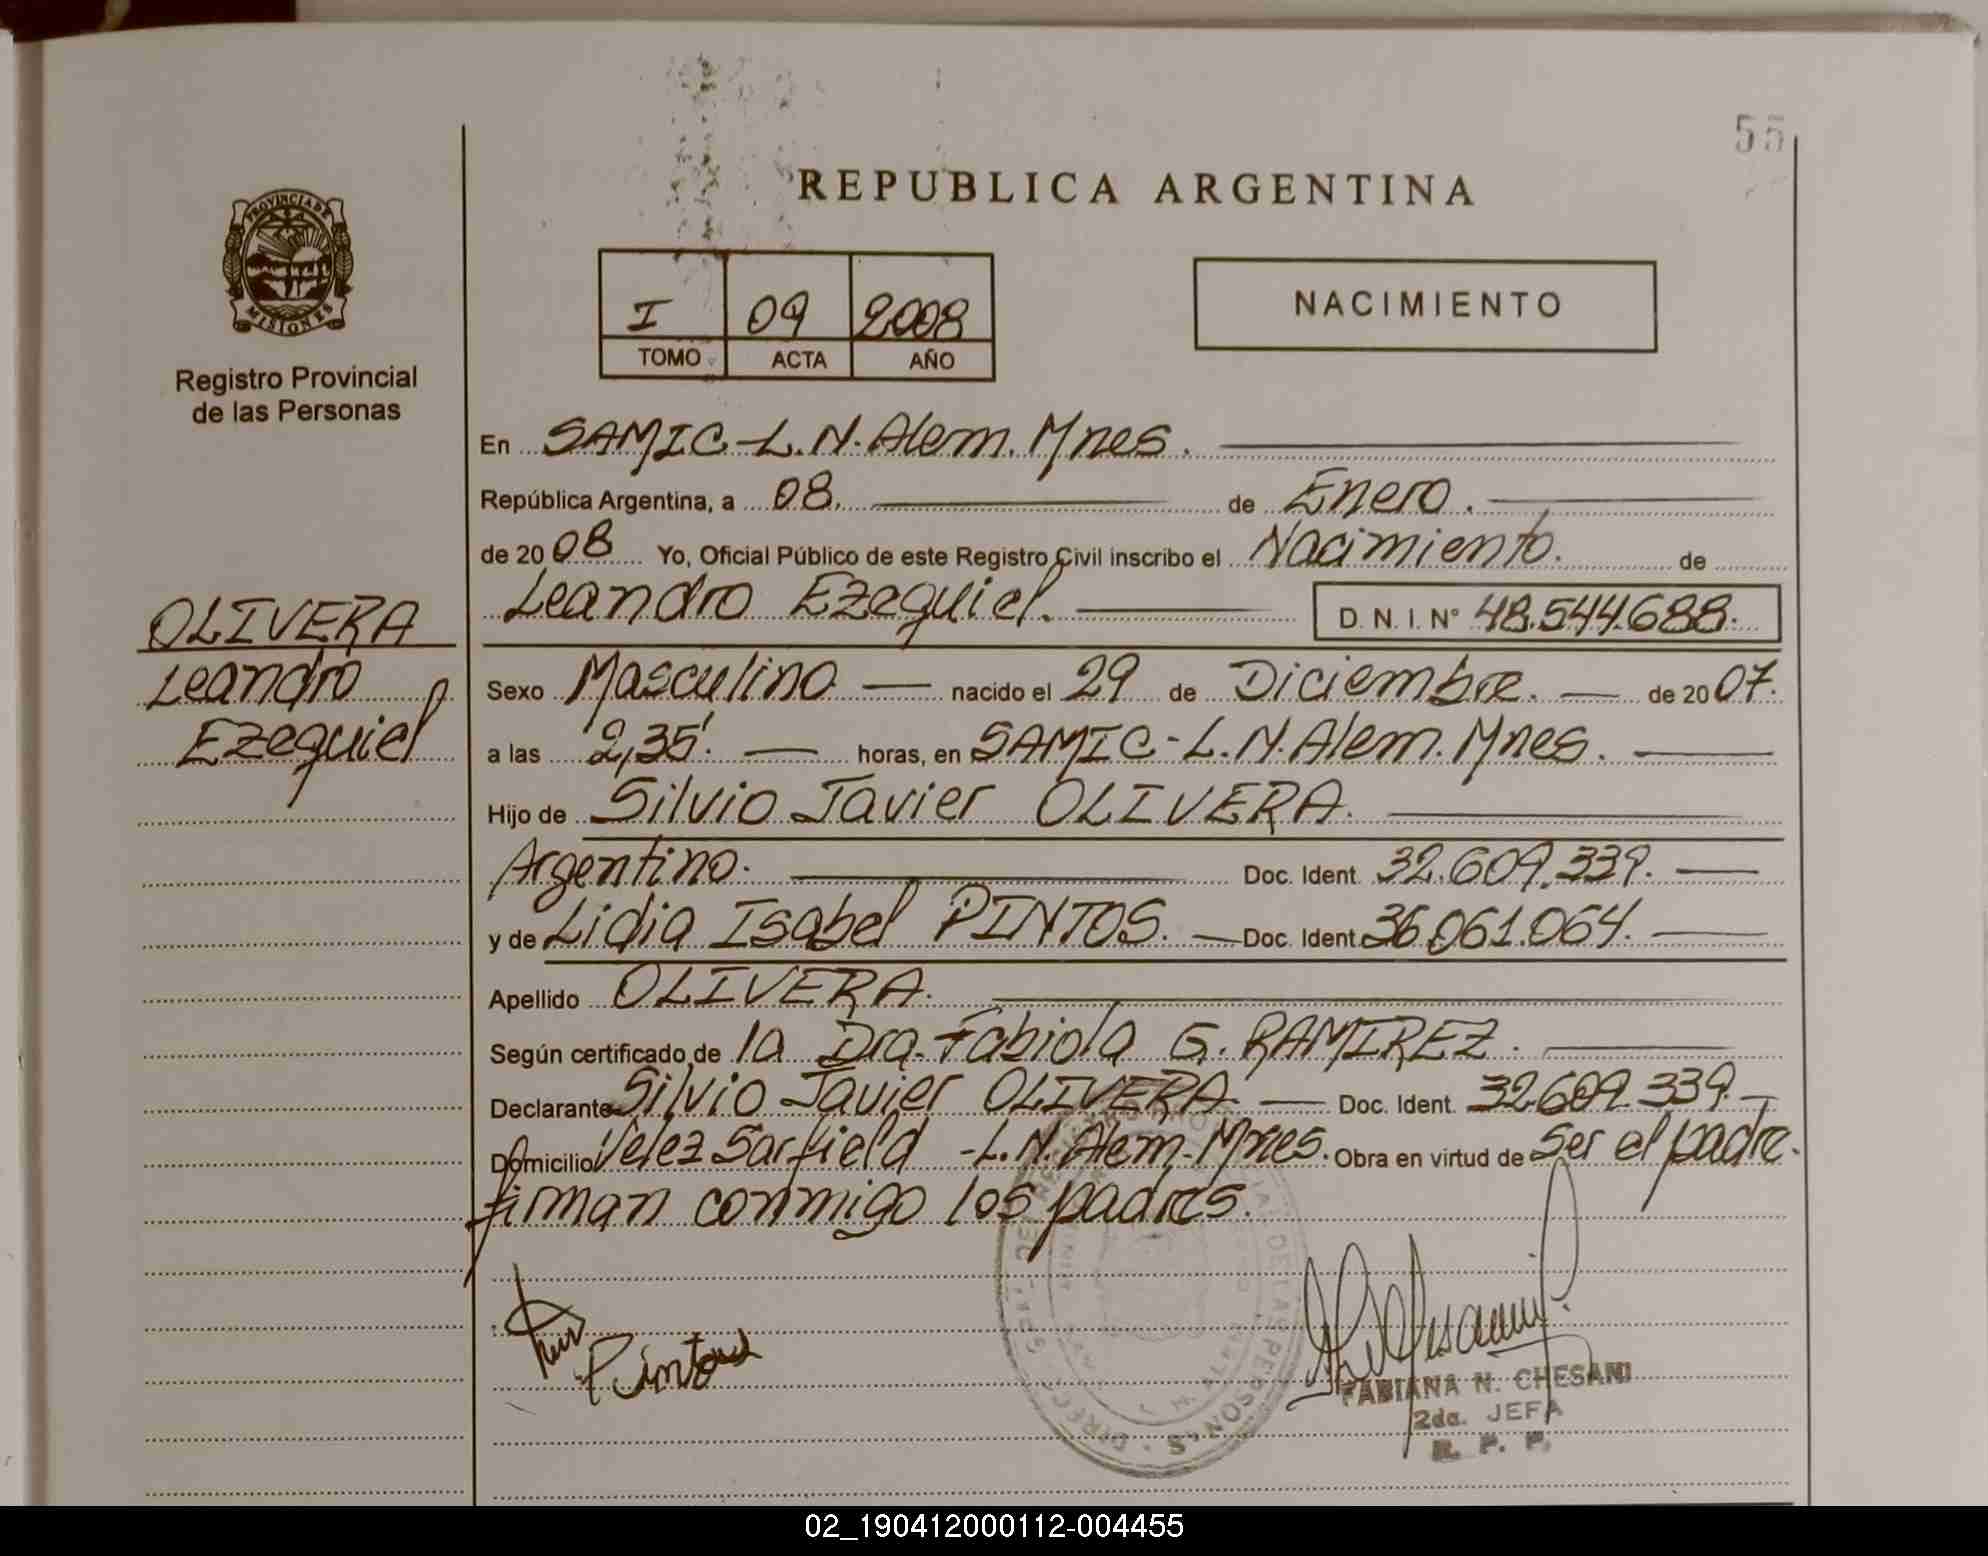 55
PROVINCIA DE
MISIONES
Registro Provincial
de las Personas
OLIVERA
Leandro
Ezequiel
REPUBLICA ARGENTINA
I 09 2008
TOMO ACTA AÑO
NACIMIENTO
En SAMIC-L.N.Alem.Mnes.
República Argentina, a 08. de Enero.
de 2008 Yo, Oficial Público de este Registro Civil inscribo el Nacimiento. de
Leandro Ezequiel. D. N. I. N° 48.544.688.
Sexo Masculino nacido el 29 de Diciembre. de 2007.
a las 2,35'. horas, en SAMIC-L.N.Alem.Mnes.
Hijo de Silvio Javier OLIVERA.
Argentino. Doc. Ident. 32.609.339.
y de Lidia Isabel PINTOS. Doc. Ident. 36.061.064.
Apellido OLIVERA.
Según certificado de la Dra. Fabiola G. RAMIREZ.
Declarante Silvio Javier OLIVERA Doc. Ident. 32.609.339.
Domicilio Velez Sarfield -L.N.Alem-Mnes. Obra en virtud de Ser el padre.
firman conmigo los padres.
FABIANA N. CHESANI
2da. JEFA
R. P. P.
02_190412000112-004455